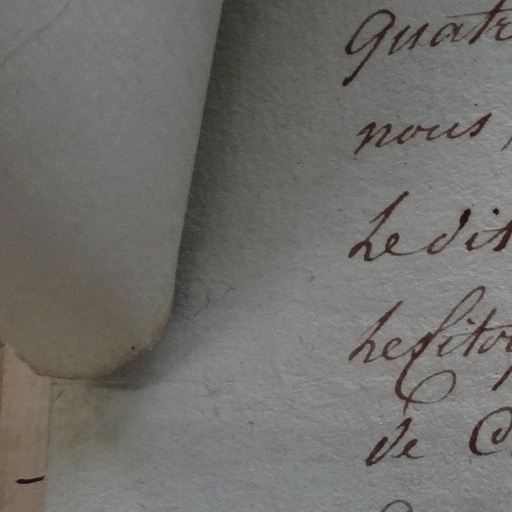 quatr
nous,
Le dit
Le Citoy
de C